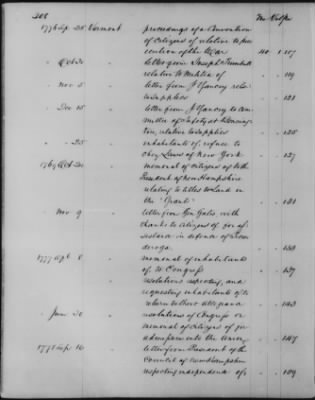 208
No Vol Pge
1776 Sep 25 Vermont proceedings of a Convention
of Citizens of relative to pro
secution of the War 40 1 117
" Oct 30 " letter from Joseph Trumbull
relative to Militia of " " 119
" Nov 5 " letter from J. Yancey rela
to supplies " " 121
" Dec 15 " letter from J. Yancey to Com
mittee of Safety at Benning
ton, relative to supplies " " 125
" " 25 " inhabitants of refuse to
obey Laws of New York " " 127
1769 Oct memorial of citizens of to the
President of New Hampshire
relating to titles to Land in
the "Grants" " " 131
" Nov 9 " letter from Gen Gates with
thanks to citizens of for as
sistance in defence of Ticon
deroga " 133
1777 Apl 8 " memorial of inhabitants
of, to Congress " " 137
" " resolutions respecting, and
requesting inhabitants of to
return to their allegiance " " 143
" June 30 " resolutions of Congress on
memorial of Citizens of for
admission into the Union " " 147
1778 Sep 16 " letter from President of the
Council of New Hampshire
respecting independence of